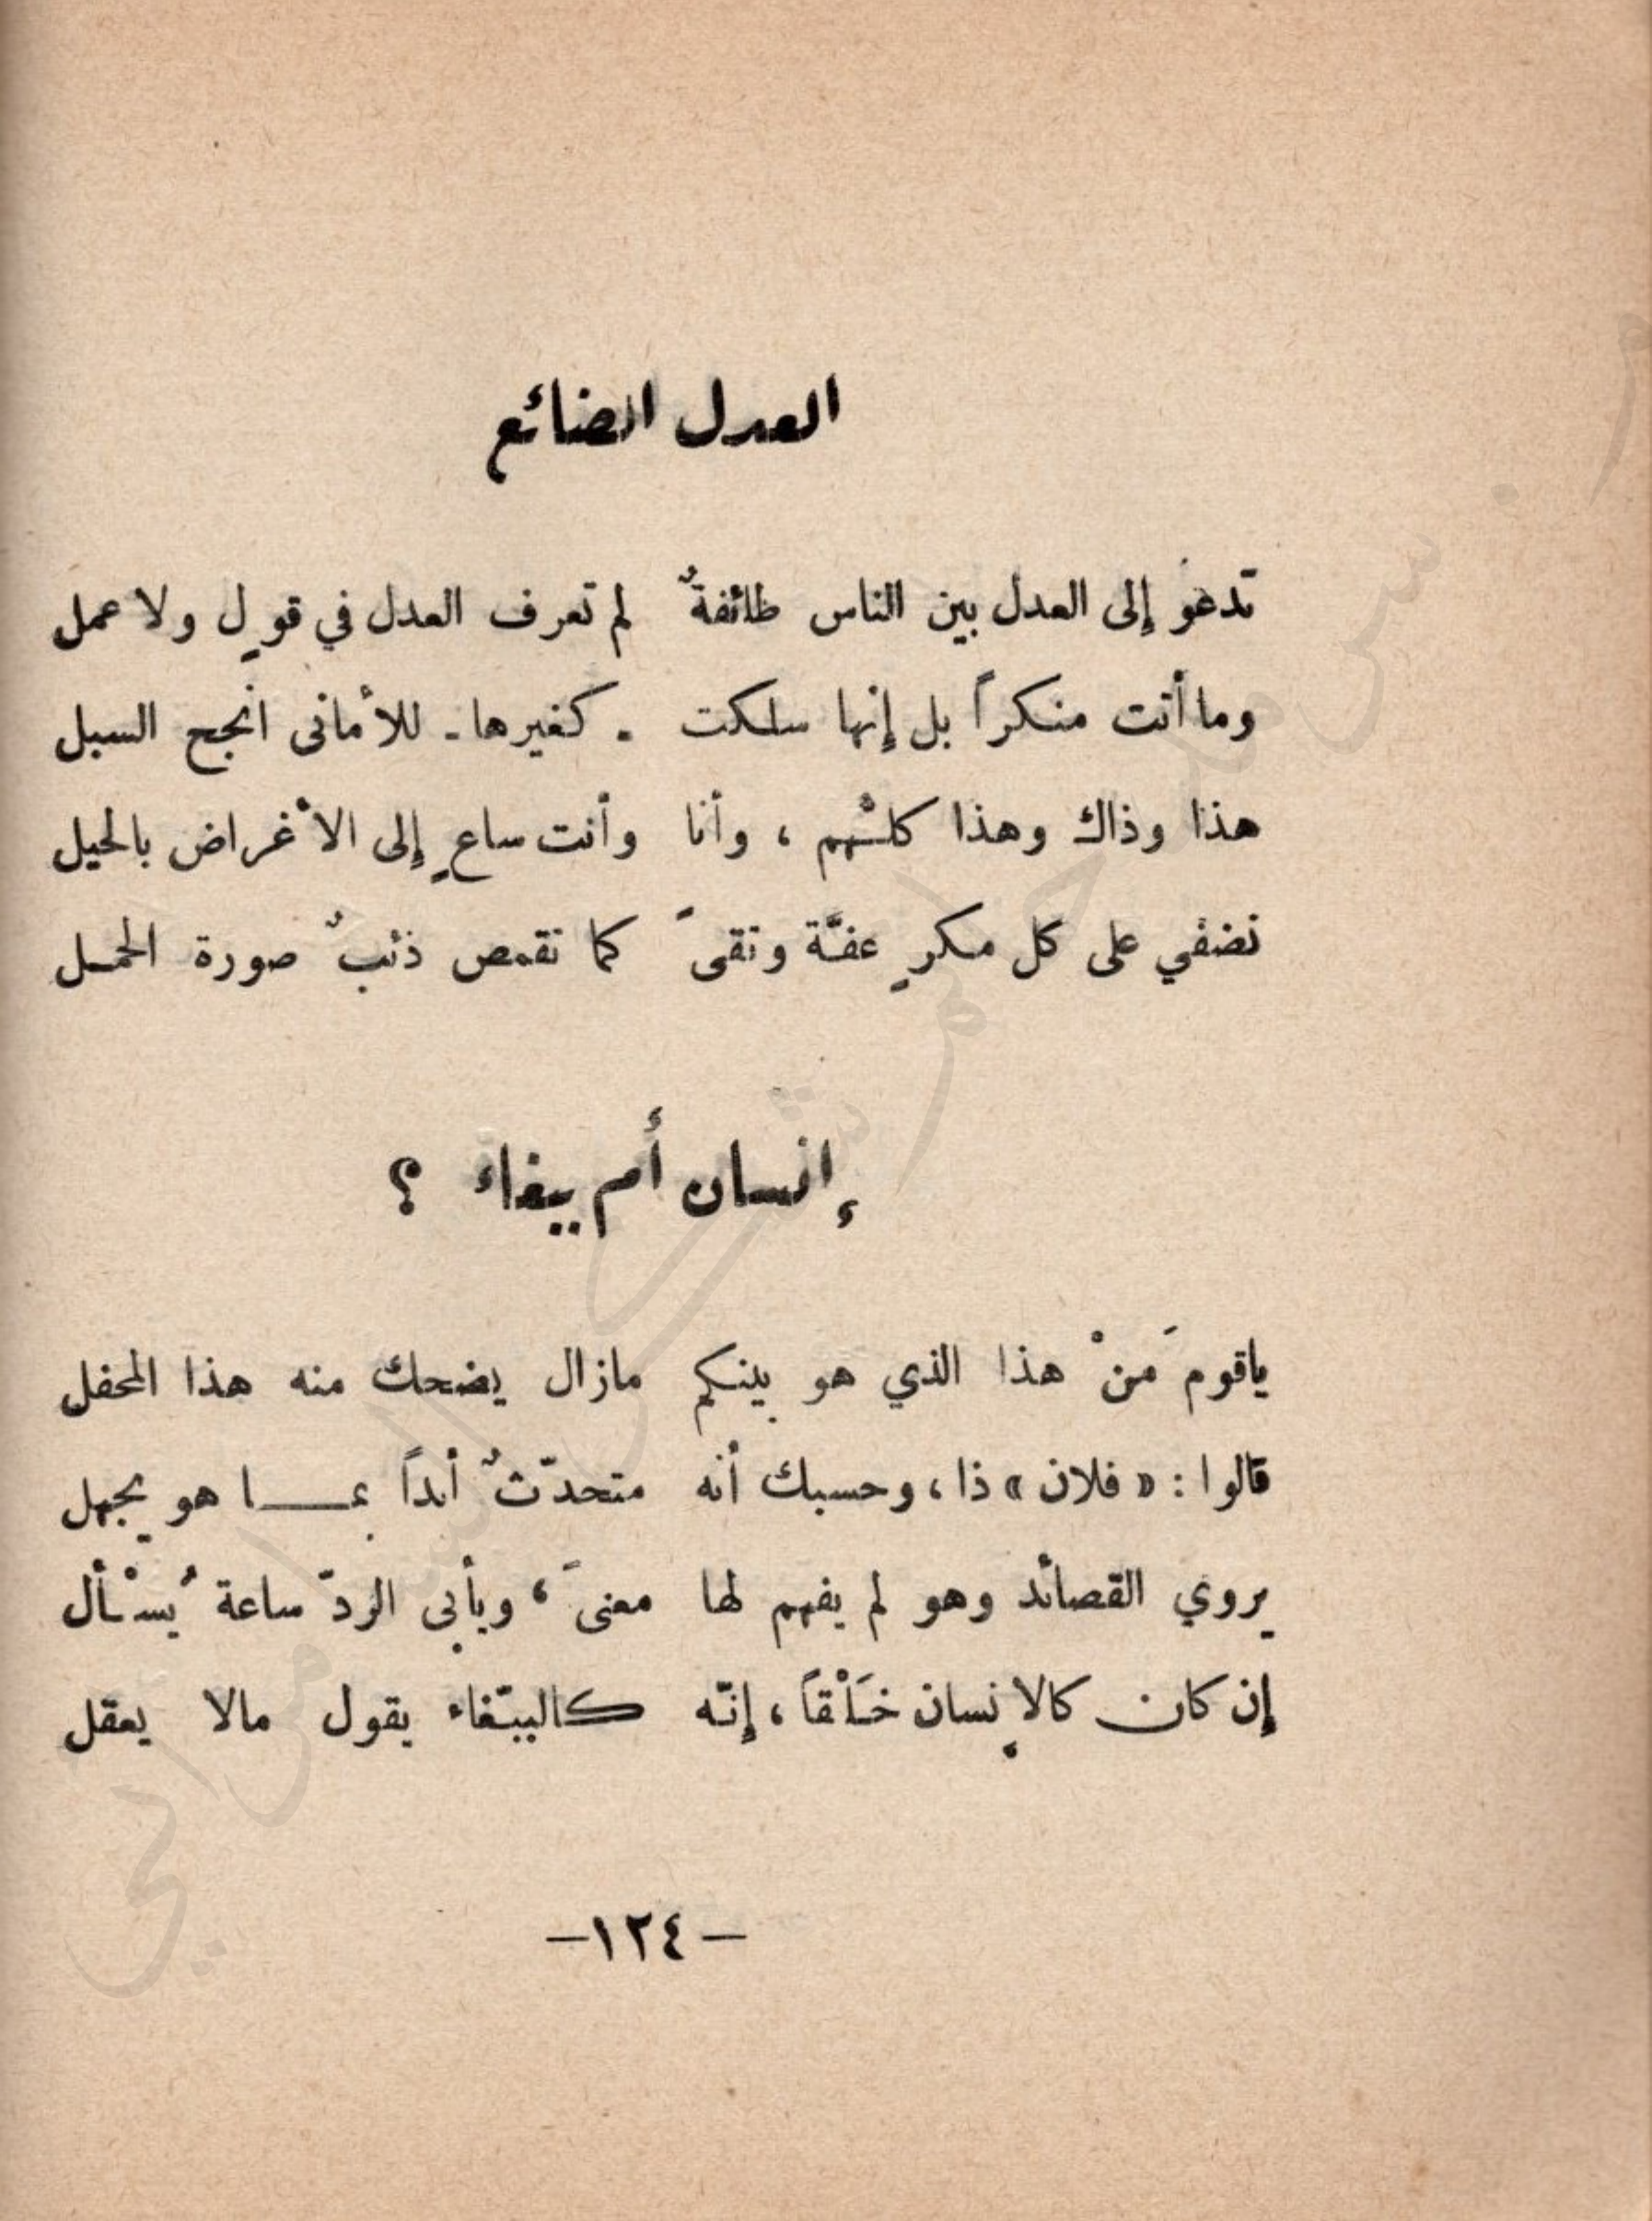 العدل الضائع
تدعو إلى العدل بين الناس طائفةٌ لم تعرف العدل في قولٍ ولا عمل
وما أتت منكراً بل إنها سلكت - كغيرها - للأماني أنجح السبل
هذا وذاك وهذا كلّهم ، وأنا وأنت ساعٍ إلى الأغراض بالحيل
نضفي على كل مكرٍ عفّة وتقىً كما تقمص ذئبٌ صورة الحمل
إنسان أم ببغاء ؟
ياقوم مَنْ هذا الذي هو بينكم مازال يضحك منه هذا المحفل
قالوا : « فلان » ذا ، وحسبك أنه متحدّثٌ أبداً بمـــا هو يجهل
يروي القصائد وهو لم يفهم لها معنىً ، ويأبى الردّ ساعة يُسْأل
إن كان كالإنسان خَلْقاً ، إنّه كالببّغاء يقول مالا يعقل
– ١٢٤ –